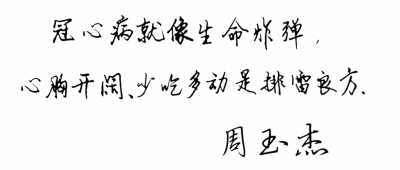 冠心病就像生命炸弹，
心胸开阔、少吃多动是排雷良方.
周玉杰